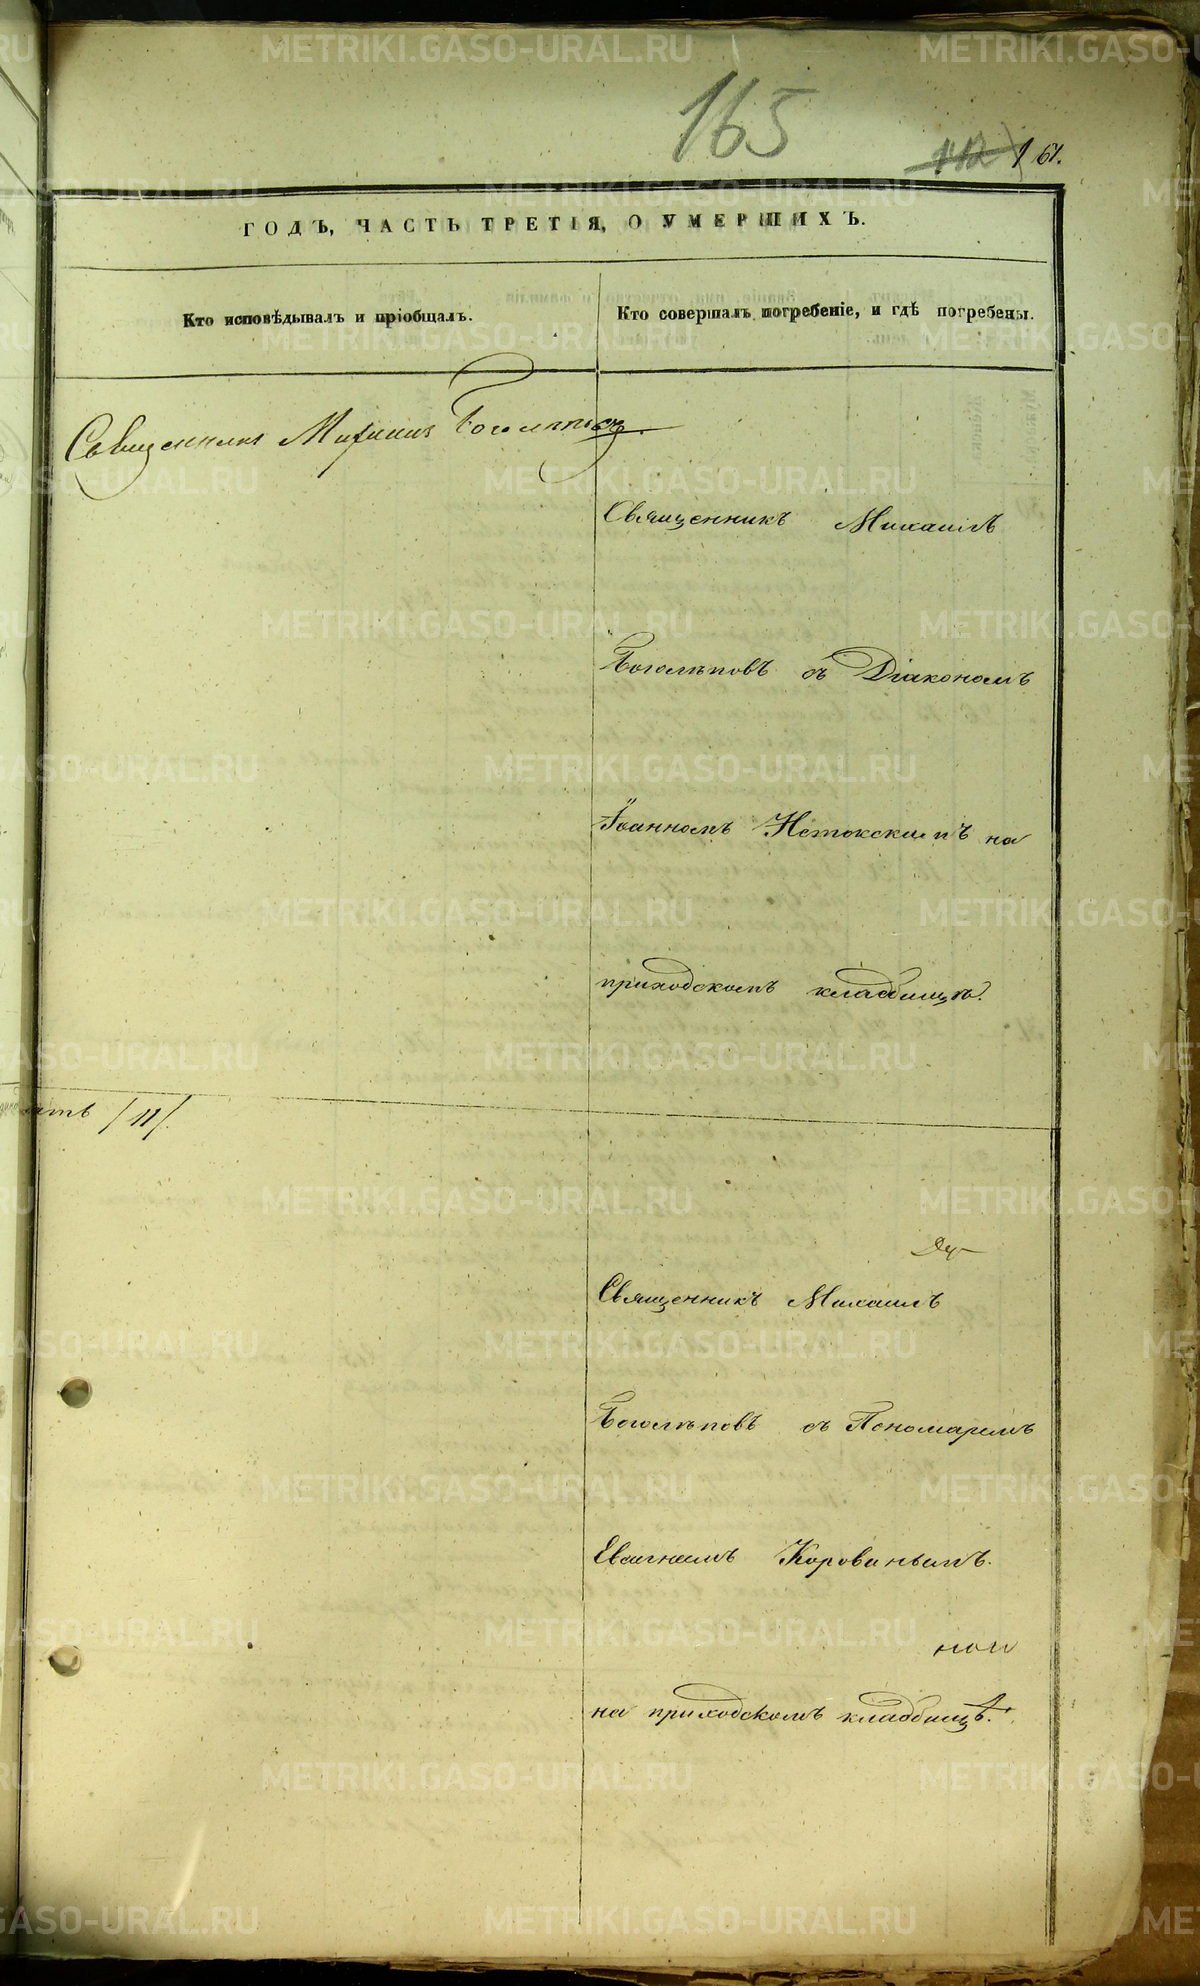 165
112 161.
ГОДЪ, ЧАСТЬ ТРЕТІЯ, О УМЕРШИХЪ.
Кто исповѣдывалъ и пріобщалъ.
Кто совершалъ погребеніе, и гдѣ погребены.
Священникъ Михаилъ Боголѣповъ.
Священникъ Михаилъ
Боголѣповъ съ Діакономъ
Іоанномъ Нетокскимъ на
приходскомъ кладбищѣ.
/11/.
Священникъ Михаилъ
Боголѣповъ съ Пономаремъ
Евагніемъ Коровинымъ.
на приходскомъ кладбищѣ.
METRIKI.GASO-URAL.RU